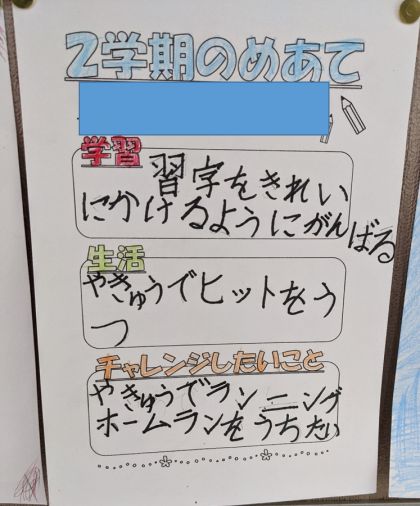 2学期のめあて
学習
習字をきれい
にかけるようにがんばる
生活
やきゅうでヒットをう
つ
チャレンジしたいこと
やきゅうでランニング
ホームランをうちたい